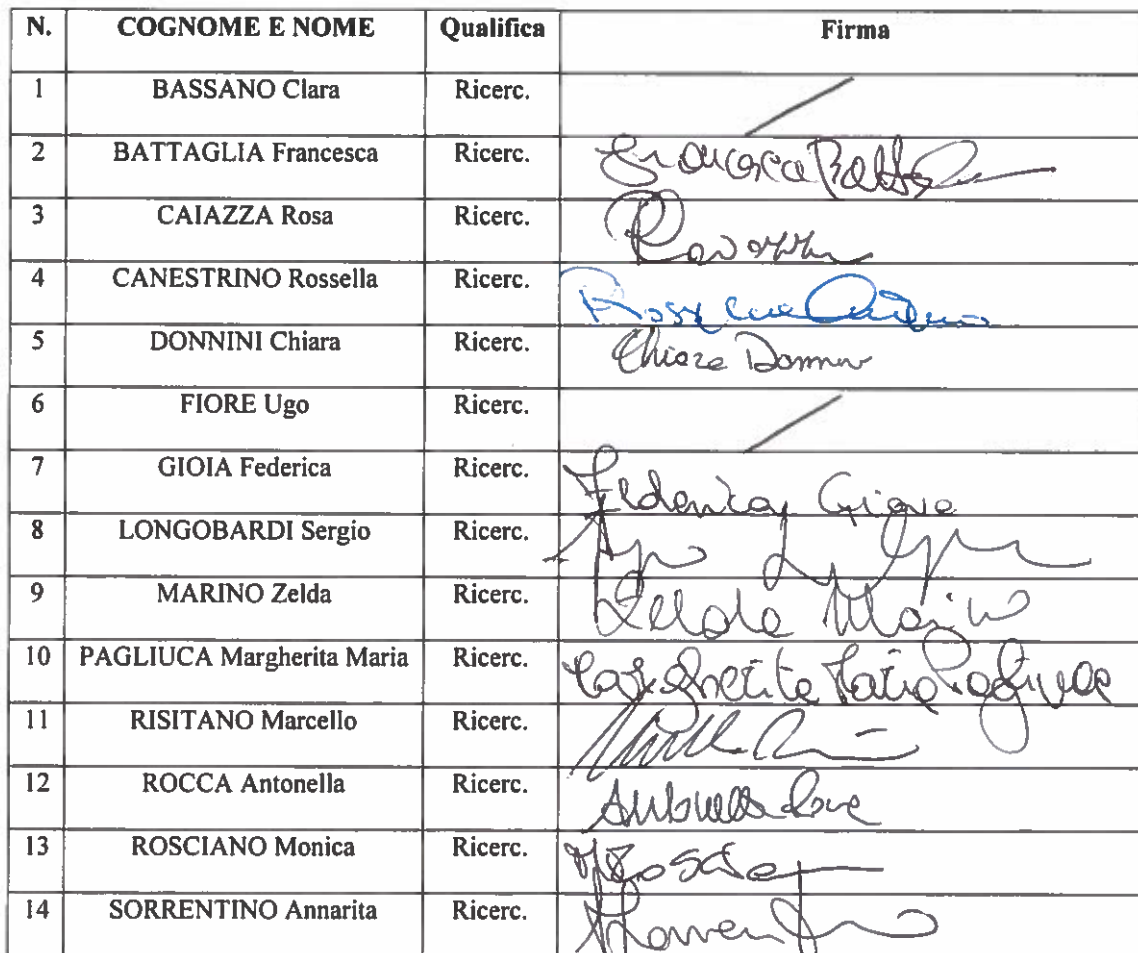 N. COGNOME E NOME Qualifica Firma
1 BASSANO Clara Ricerc.
2 BATTAGLIA Francesca Ricerc. Francesca
3 CAIAZZA Rosa Ricerc.
4 CANESTRINO Rossella Ricerc.
5 DONNINI Chiara Ricerc. Chiara
6 FIORE Ugo Ricerc.
7 GIOIA Federica Ricerc. Federica
8 LONGOBARDI Sergio Ricerc.
9 MARINO Zelda Ricerc. Zelda Marino
10 PAGLIUCA Margherita Maria Ricerc. Margherita Maria Pagliuca
11 RISITANO Marcello Ricerc.
12 ROCCA Antonella Ricerc. Antonella
13 ROSCIANO Monica Ricerc.
14 SORRENTINO Annarita Ricerc.